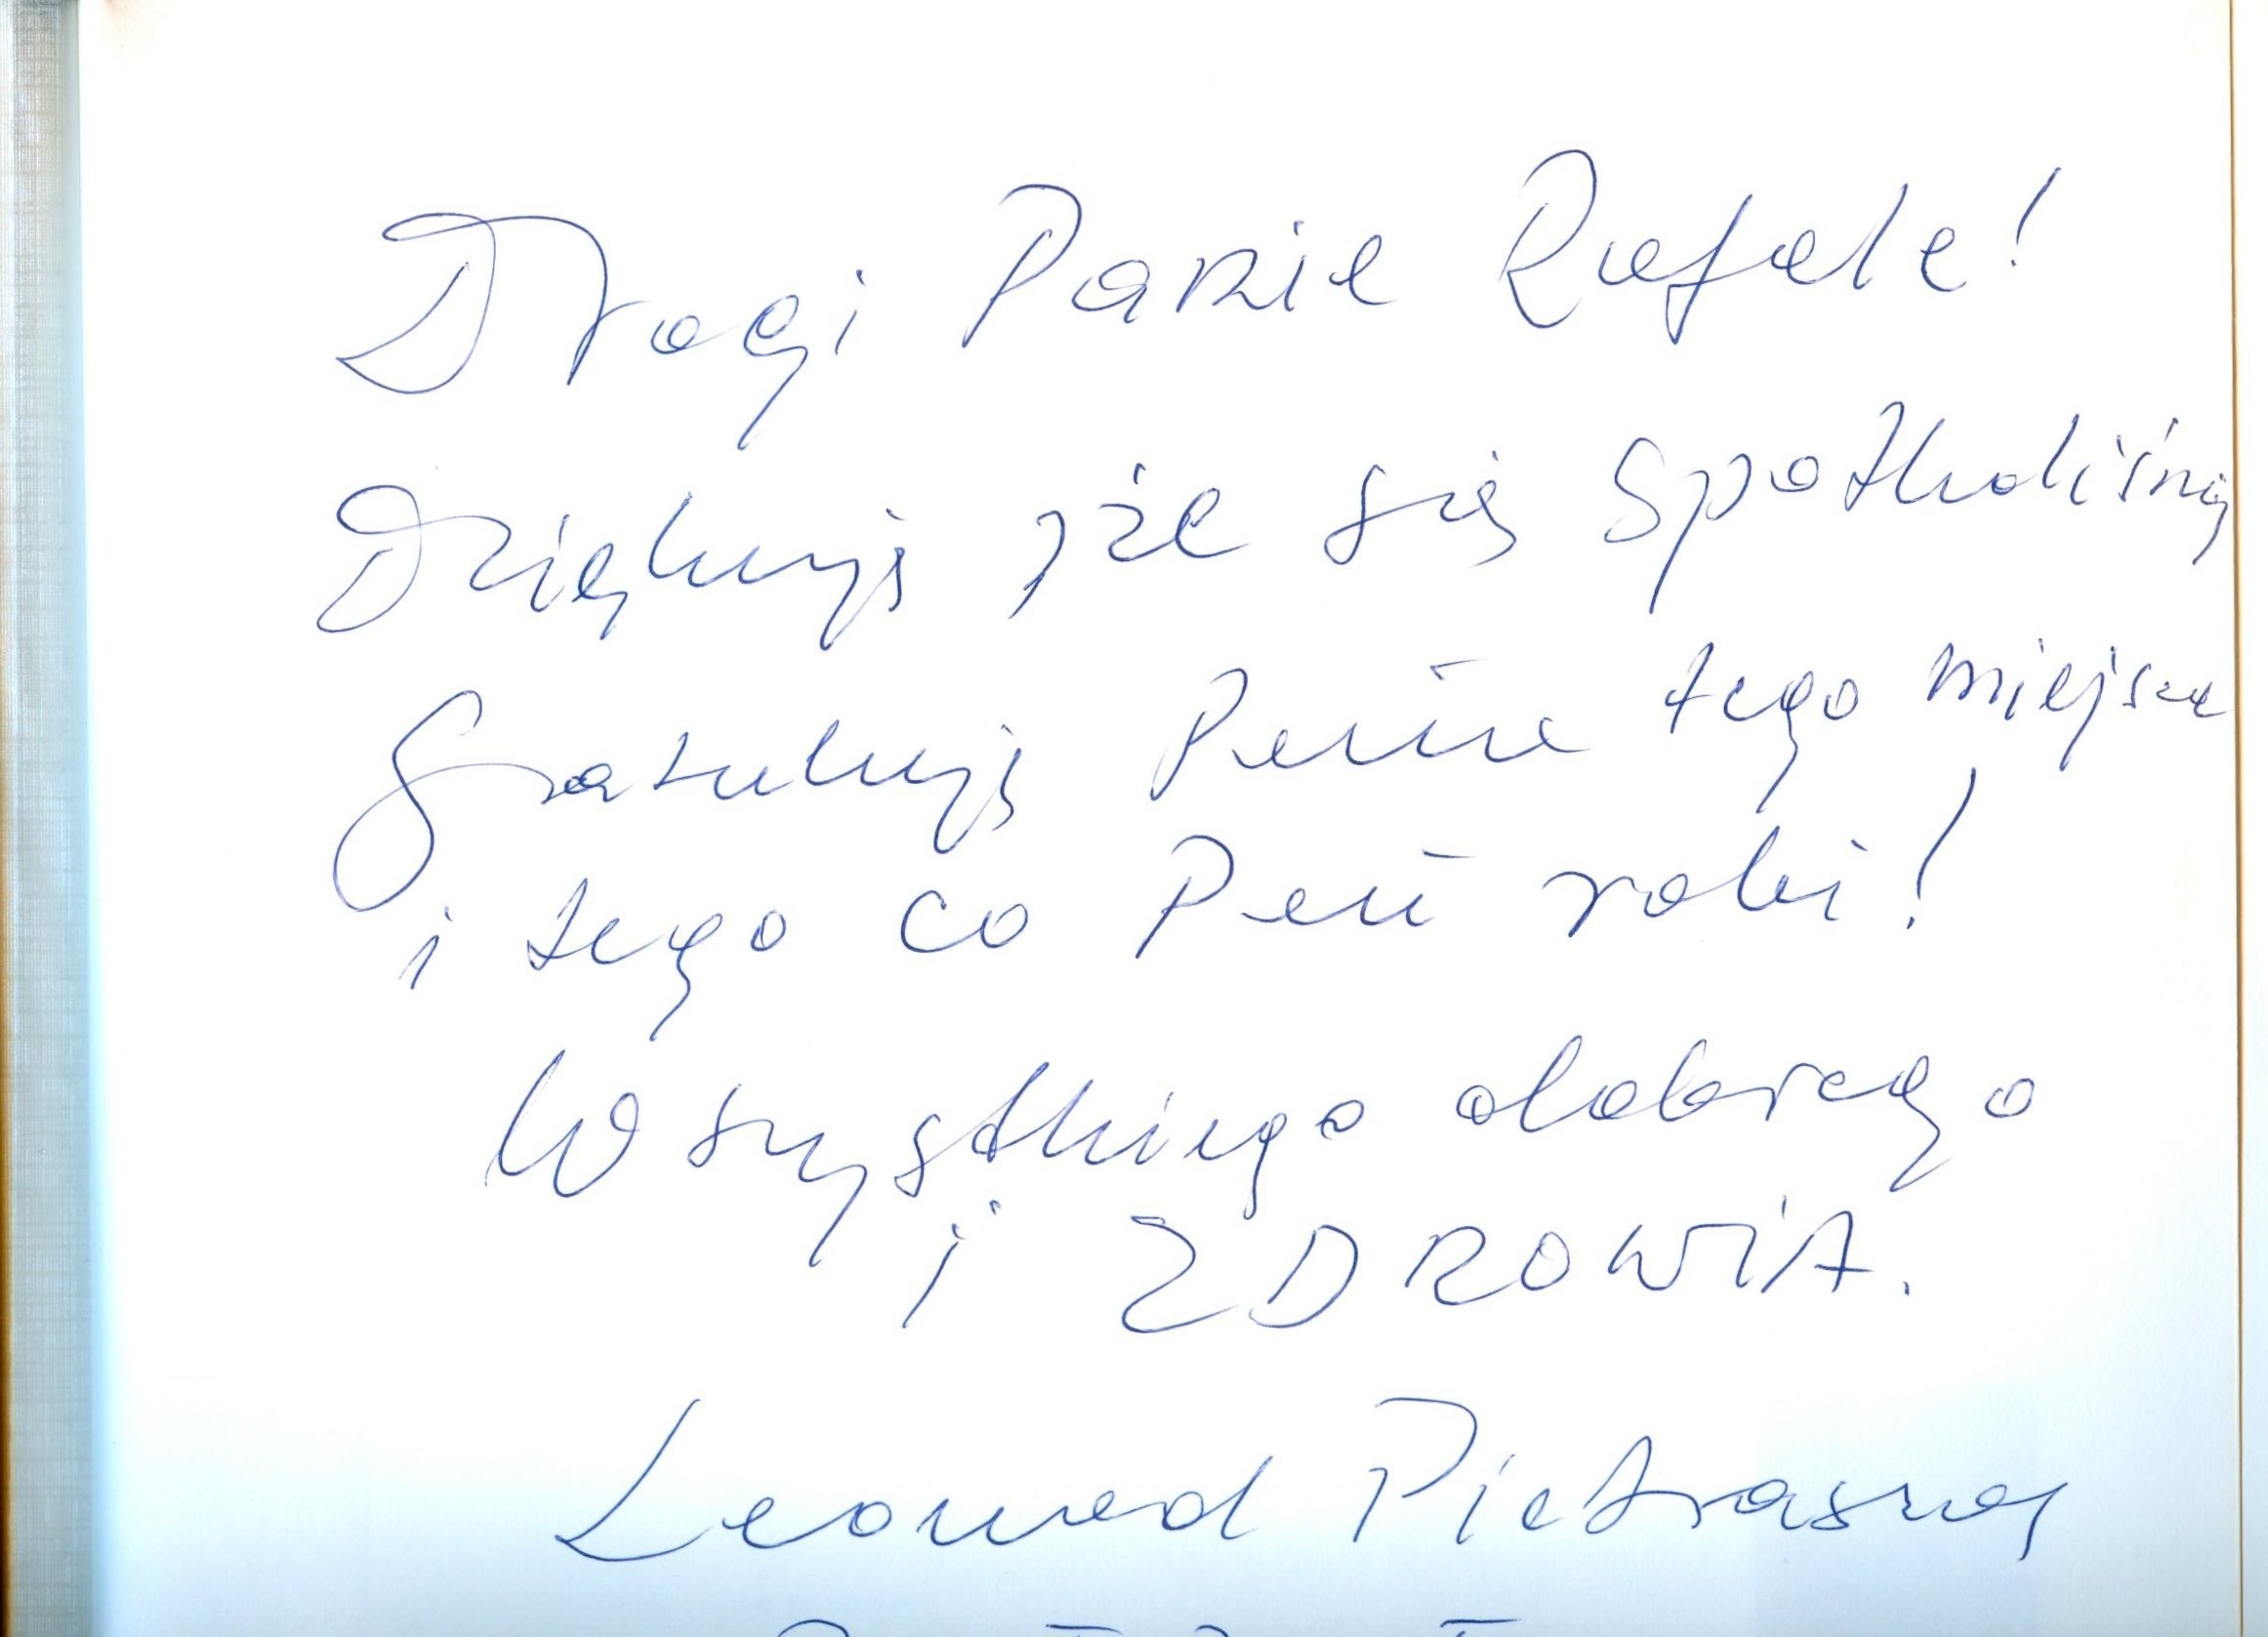 Drogi Panie Rafale!
Dziękuję, że się spotkaliśmy
Gratuluję Panu tego miejsca
i tego co Pan robi!
Wszystkiego dobrego
i ZDROWIA.
Leonard Pietraszak